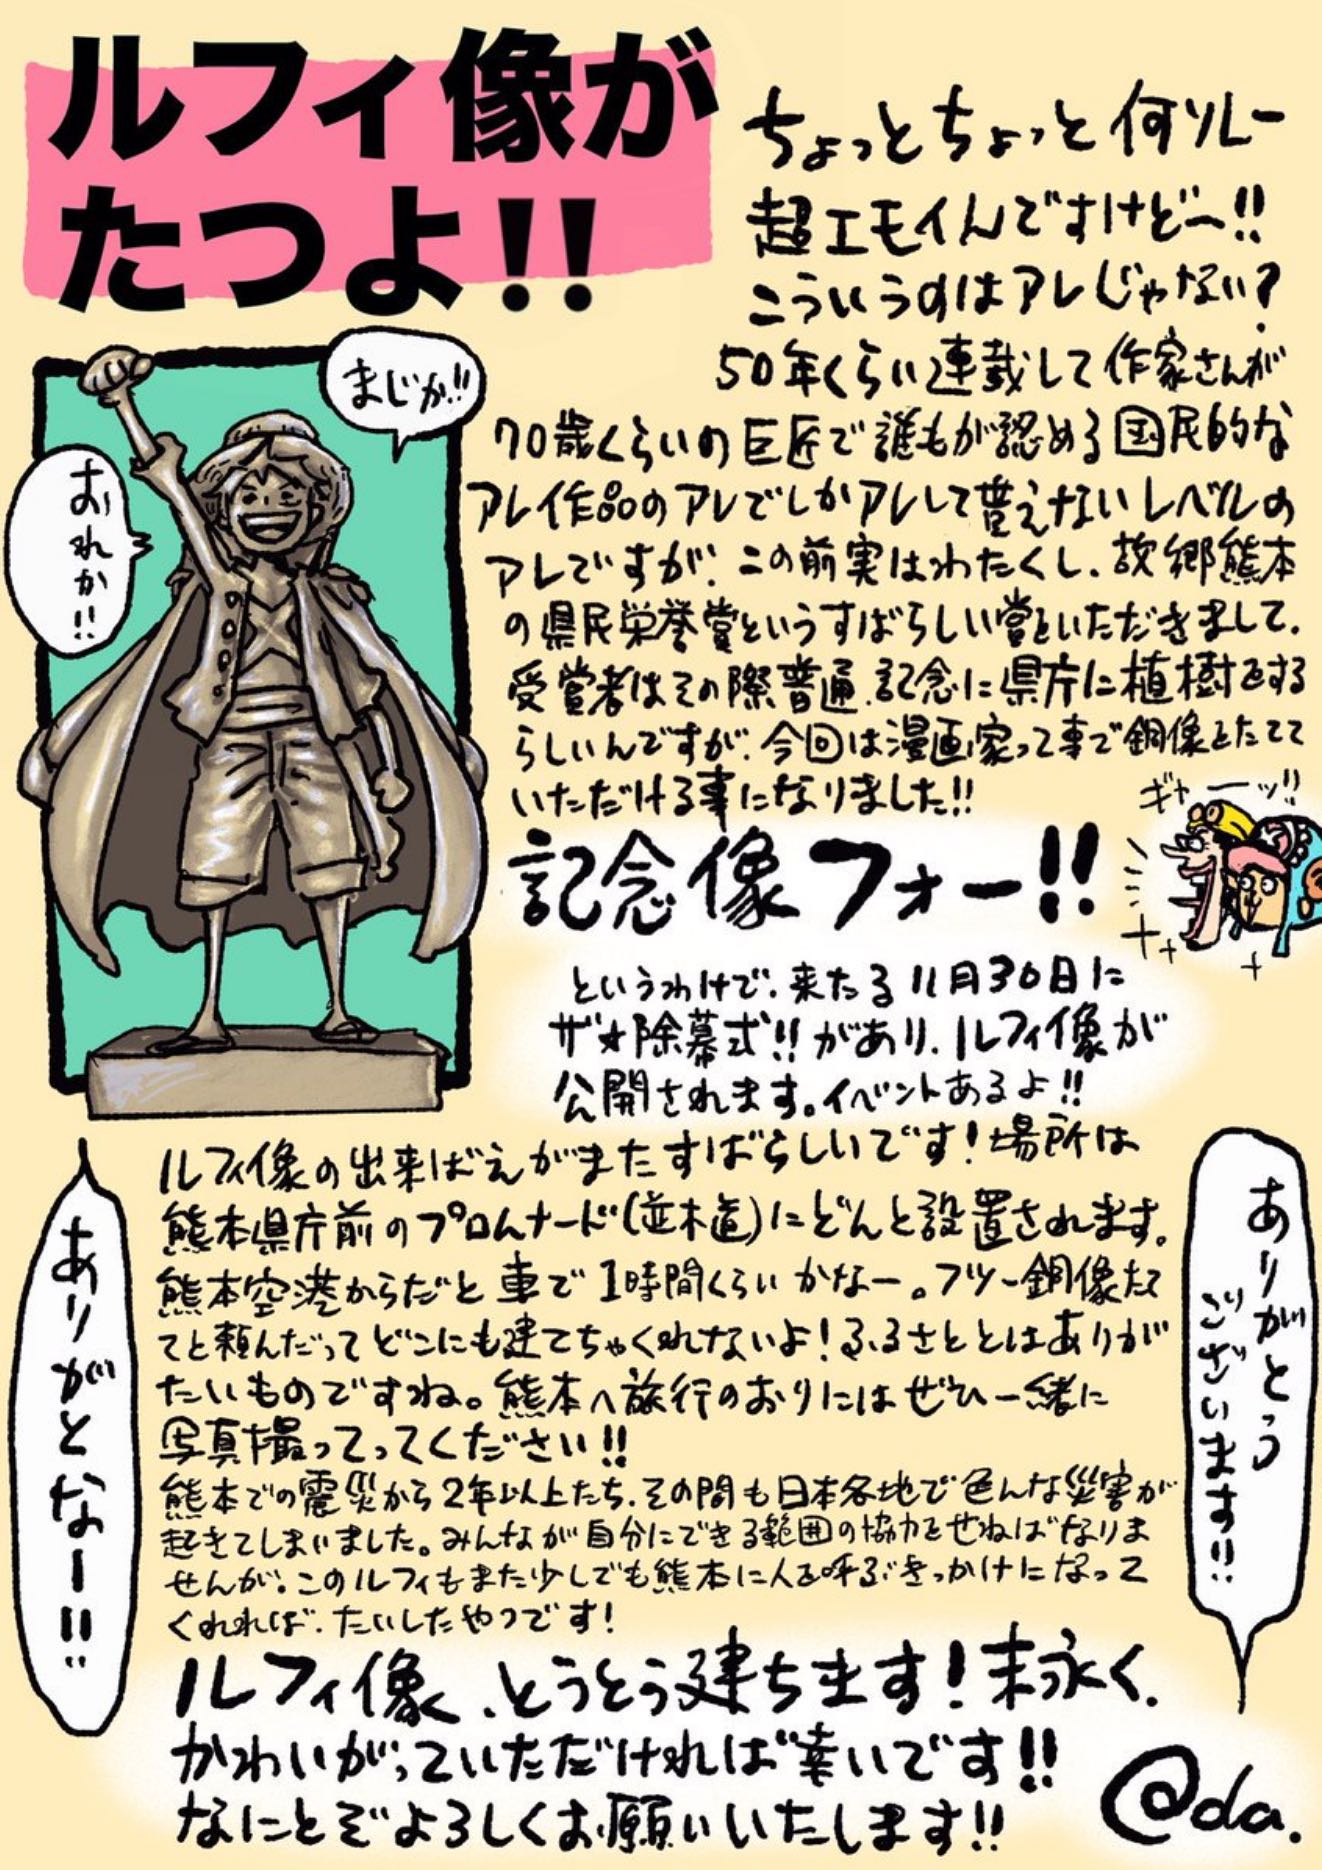 ルフィ像が
たつよ!!
ちょっとちょっと何ソレー
超エモイんですけど〜!!
こういうのはアレじゃない?
50年くらい連載して作家さんが
70歳くらいの巨匠で誰もが認める国民的な
アレ作品のアレでしかアレして貰えないレベルの
アレですが、この前実はわたくし、故郷熊本
の県民栄誉賞というすばらしい賞をいただきまして、
受賞者はその際普通、記念に県庁に植樹をする
らしいんですが、今回は漫画家って事で銅像をたてて
いただける事になりました!!
まじか!!
おれか!!
ギャーーッ!!
記念像フォー!!
というわけで、来たる11月30日に
ザ☆除幕式!!があり、ルフィ像が
公開されます。イベントあるよ!!
ルフィ像の出来ばえがまたすばらしいです!場所は
熊本県庁前のプロムナード(並木道)にどんと設置されます。
熊本空港からだと車で1時間くらいかなー。フツー銅像たて
てと頼んだってどこにも建てちゃくれないよ!ふるさととはありが
たいものですね。熊本へ旅行のおりにはぜひ一緒に
写真撮ってってください!!
熊本での震災から2年以上たち、その間も日本各地で色んな災害が
起きてしまいました。みんなが自分にできる範囲の協力をせねばなりま
せんが、このルフィもまた少しでも熊本に人を呼ぶきっかけになって
くれれば、たいしたやつです!
ありがとなー!!
ありがとう
ございます!!
ルフィ像、とうとう建ちます!末永く、
かわいがっていただければ幸いです!!
なにとぞよろしくお願いいたします!!
@da.